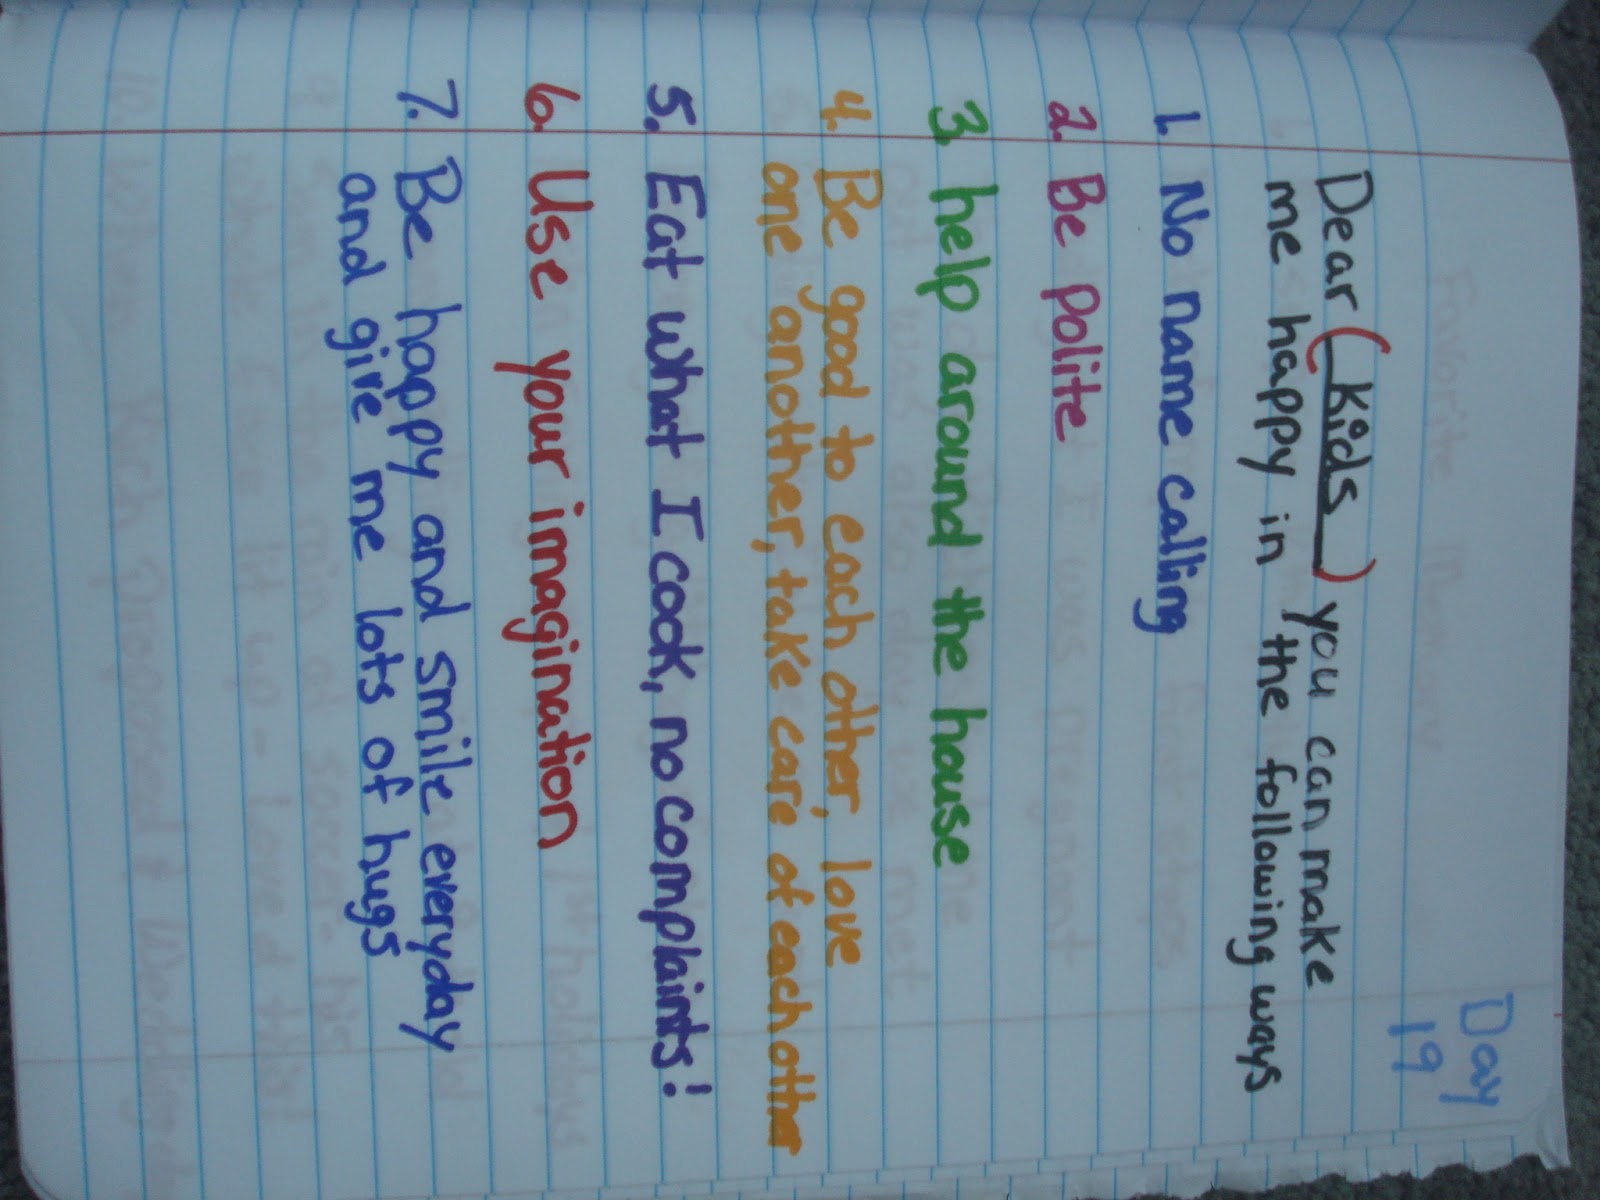 Day
19
Dear (Kids) you can make
me happy in the following ways
1. No name calling
2. Be polite
3. help around the house
4. Be good to each other, love
one another, take care of each other
5. Eat what I cook, no complaints!
6. Use your imagination
7. Be happy and smile everyday
and give me lots of hugs